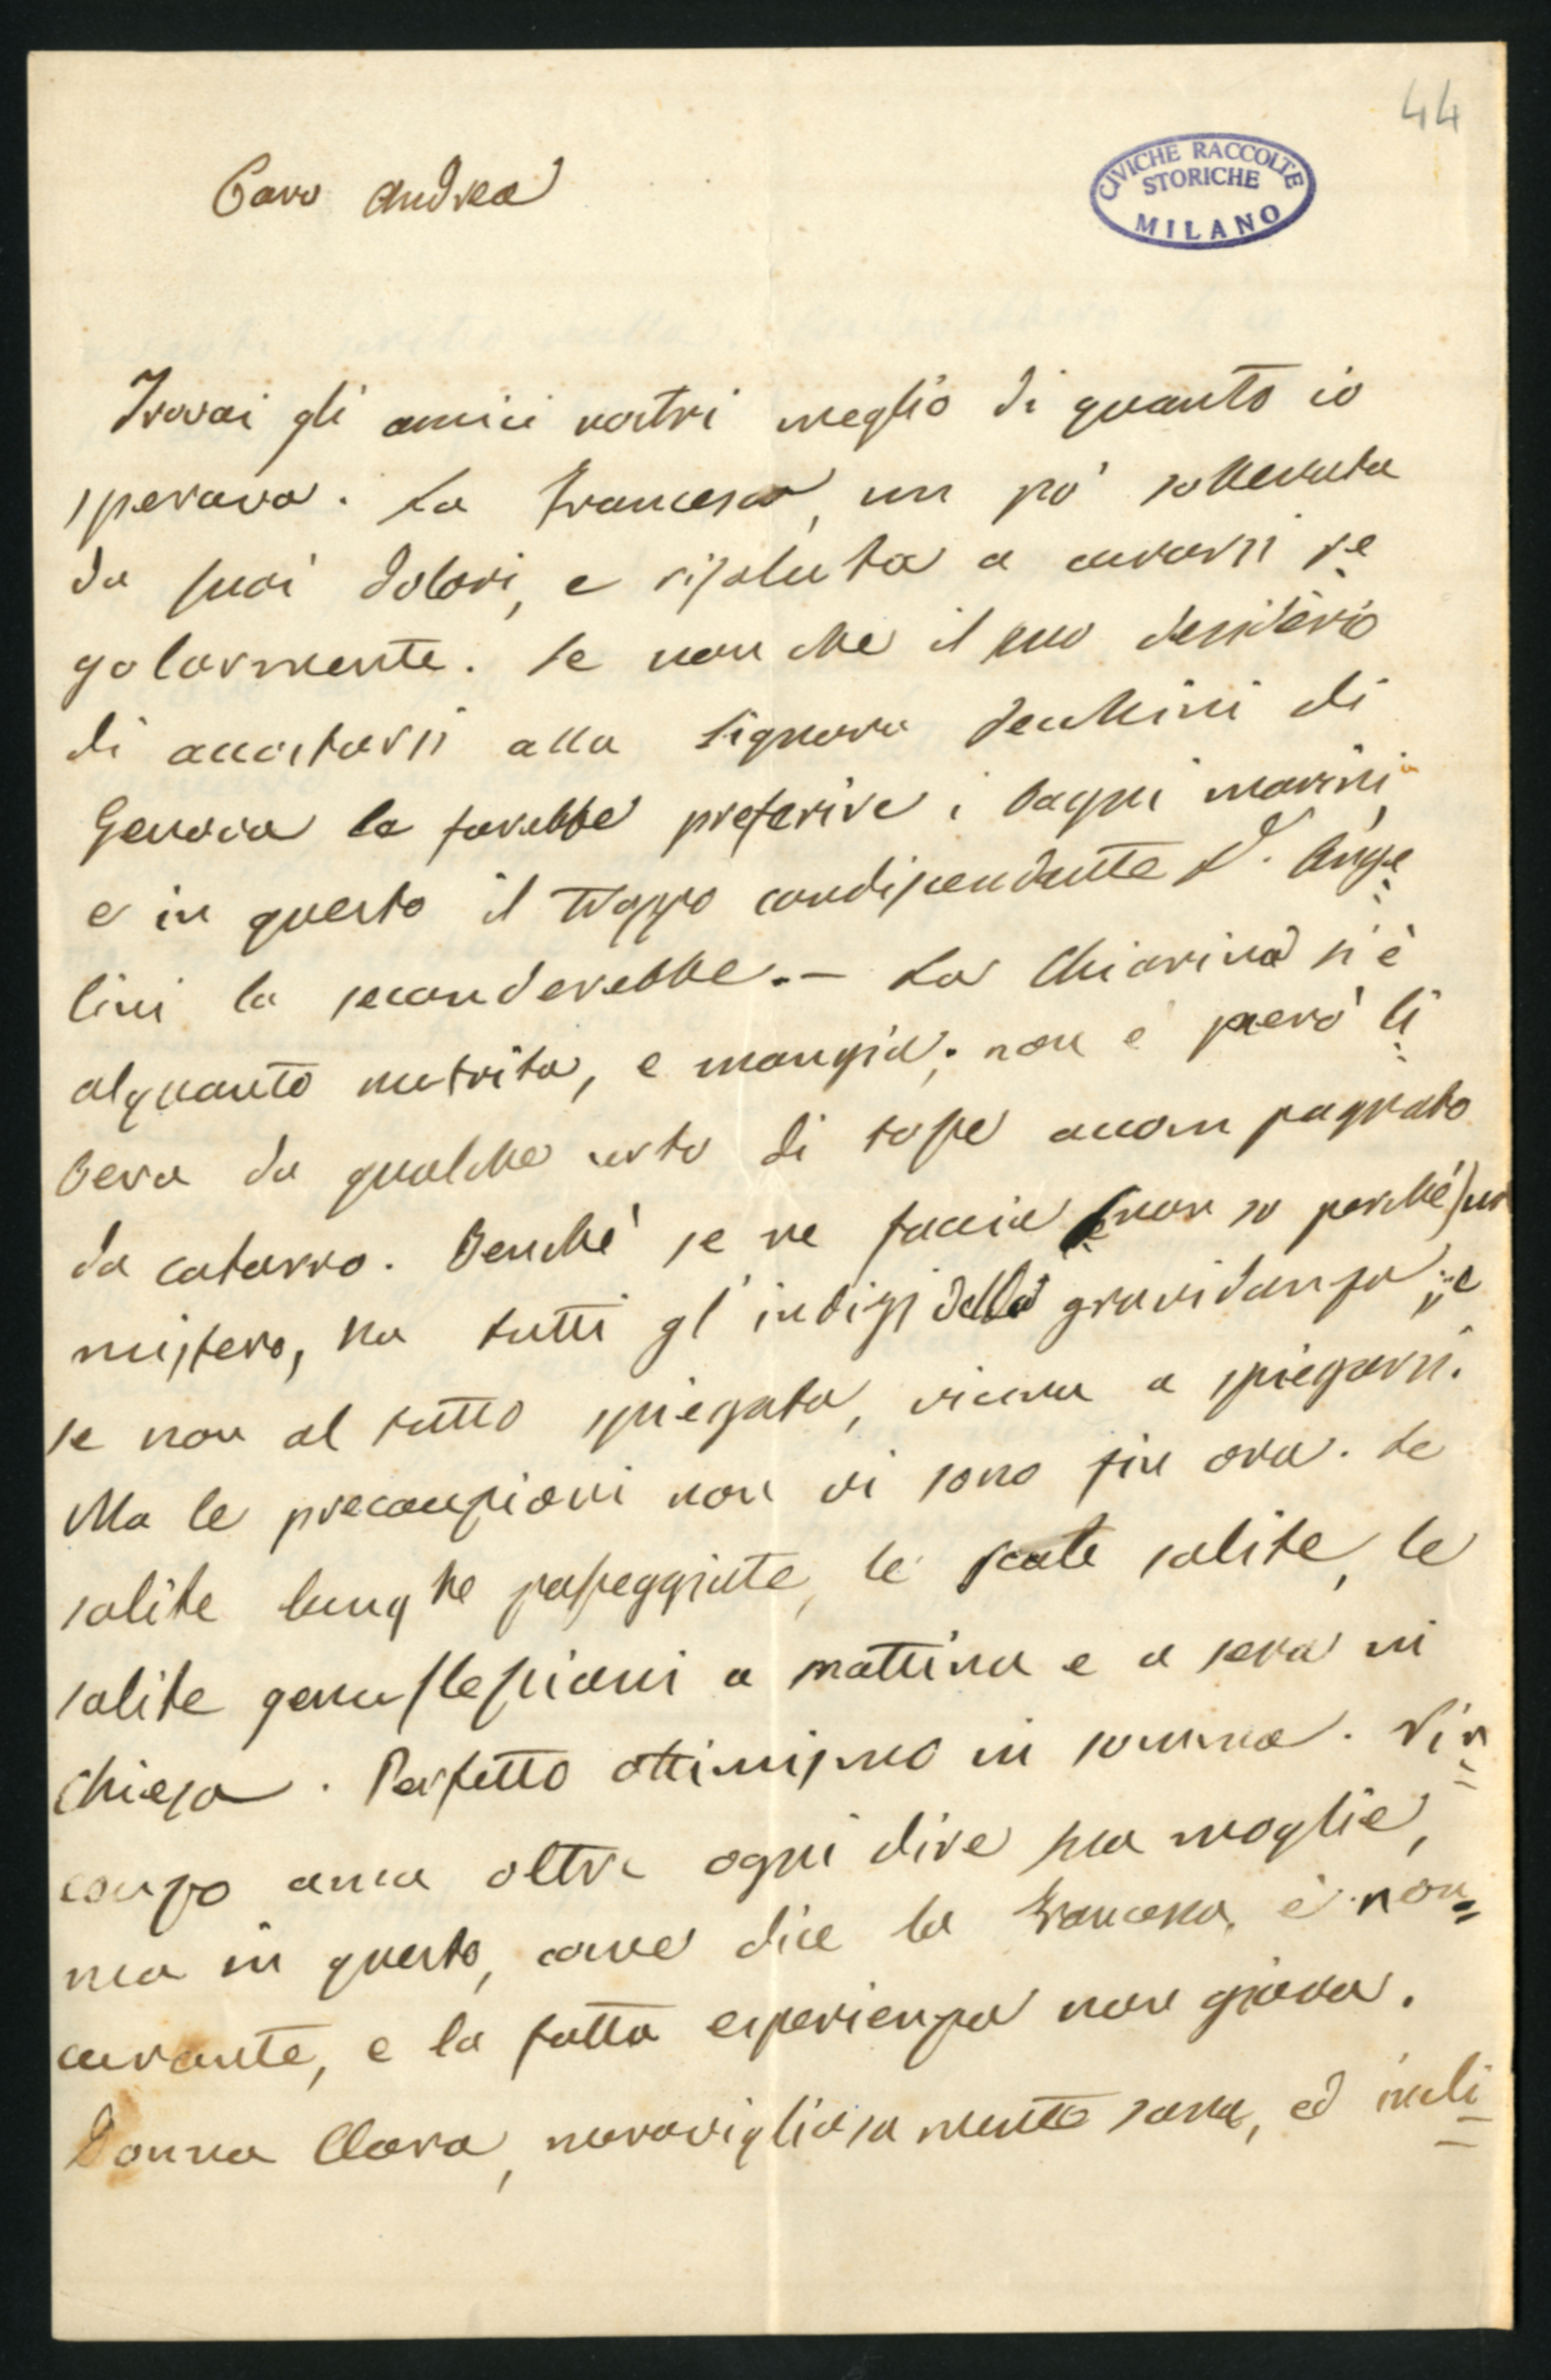 44
CIVICHE RACCOLTE
STORICHE
MILANO
Caro Andrea
Trovai gli amici nostri meglio di quanto io
sperava. La Francesca, un po' sollevata
da suoi dolori, e risoluta a curarsi re
golarmente. Se non che il suo desiderio
di accostarsi alla Signora di
Genova la farebbe preferire i bagni marini,
e in questo il troppo condiscendente D.r Ange
lini la seconderebbe. — La Chiarina s'è
alquanto nutrita, e mangia; non è però li
bera da qualche urto di tosse accompagnato
da catarro. Benché se ne faccia (non so perché) un
mistero, ha tutti gl'indizj della gravidanza; e
se non al tutto spiegata, vicina a spiegarsi.
Ma le precauzioni non vi sono fin ora. Le
solite lunghe passeggiate, le scale salite, le
solite genuflessioni a mattina e a sera in
chiesa. Perfetto ottimismo in somma. Vin
cenzo ama oltre ogni dire sua moglie,
ma in questo, come dice la Francesca, è non
curante, e la fatta esperienza non giova.
Donna Clara, maravigliosamente sana, ed incli